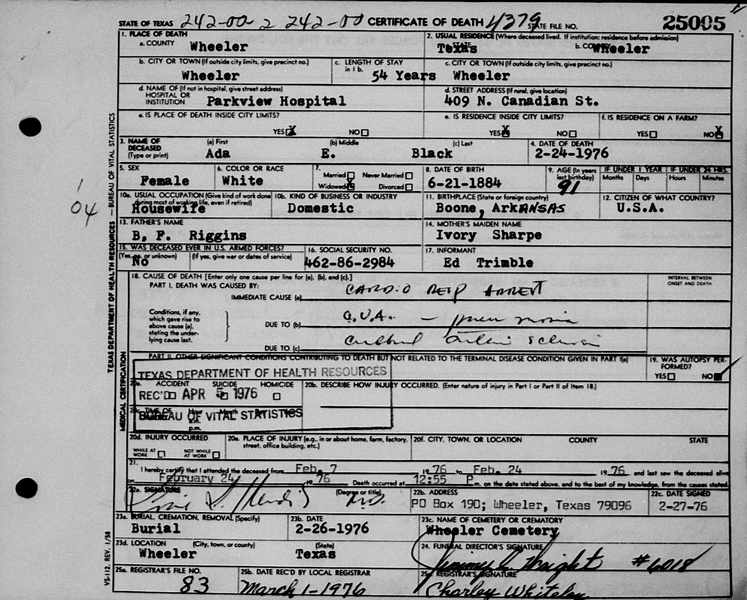 STATE OF TEXAS 242-00 2 242-00 CERTIFICATE OF DEATH 4379 STATE FILE NO. 25005
1. PLACE OF DEATH 2. USUAL RESIDENCE (Where deceased lived. If institution: residence before admission)
a. COUNTY Wheeler a. STATE Texas b. COUNTY Wheeler
b. CITY OR TOWN (If outside city limits, give precinct no.) c. LENGTH OF STAY in 1 b. c. CITY OR TOWN (If outside city limits, give precinct no.)
Wheeler 54 Years Wheeler
d. NAME OF (If not in hospital, give street address) HOSPITAL OR INSTITUTION Parkview Hospital d. STREET ADDRESS (If rural, give location) 409 N. Canadian St.
e. IS PLACE OF DEATH INSIDE CITY LIMITS? e. IS RESIDENCE INSIDE CITY LIMITS? f. IS RESIDENCE ON A FARM?
YES X NO YES X NO YES NO X
3. NAME OF DECEASED (Type or print) (a) First (b) Middle (c) Last 4. DATE OF DEATH
Ada E. Black 2-24-1976
5. SEX 6. COLOR OR RACE 7. Married Never Married Widowed X Divorced 8. DATE OF BIRTH 9. AGE (In years last birthday) IF UNDER 1 YEAR Months Days IF UNDER 24 HRS. Hours Min.
Female White 6-21-1884 91
10a. USUAL OCCUPATION (Give kind of work done during most of working life, even if retired) 10b. KIND OF BUSINESS OR INDUSTRY 11. BIRTHPLACE (State or foreign country) 12. CITIZEN OF WHAT COUNTRY?
Housewife Domestic Boone, Arkansas U.S.A.
13. FATHER'S NAME 14. MOTHER'S MAIDEN NAME
B. F. Riggins Ivory Sharpe
15. WAS DECEASED EVER IN U.S. ARMED FORCES? 16. SOCIAL SECURITY NO. 17. INFORMANT
(Yes, no, or unknown) (If yes, give war or dates of service)
No 462-86-2984 Ed Trimble
18. CAUSE OF DEATH [Enter only one cause per line for (a), (b), and (c).] INTERVAL BETWEEN ONSET AND DEATH
PART I. DEATH WAS CAUSED BY:
IMMEDIATE CAUSE (a) CARDIO RESP ARREST
Conditions, if any, which gave rise to above cause (a), stating the underlying cause last.
DUE TO (b) C.V.A. - pneumonia
DUE TO (c)
PART II. OTHER SIGNIFICANT CONDITIONS CONTRIBUTING TO DEATH BUT NOT RELATED TO THE TERMINAL DISEASE CONDITION GIVEN IN PART I(a) 19. WAS AUTOPSY PERFORMED?
YES NO
TEXAS DEPARTMENT OF HEALTH RESOURCES
REC'D APR 5 1976
BUREAU OF VITAL STATISTICS
20a. ACCIDENT SUICIDE HOMICIDE 20b. DESCRIBE HOW INJURY OCCURRED. (Enter nature of injury in Part I or Part II of Item 18.)
20c. TIME OF
20d. INJURY OCCURRED 20e. PLACE OF INJURY (e.g., in or about home, farm, factory, street, office building, etc.) 20f. CITY, TOWN, OR LOCATION COUNTY STATE
WHILE AT WORK NOT WHILE AT WORK
21. I hereby certify that I attended the deceased from Feb. 7 1976 to Feb. 24 1976 and last saw the deceased alive
on February 24 1976 Death occurred at 12:55 P. m. on the date stated above, and to the best of my knowledge, from the causes stated.
22a. SIGNATURE (Degree or title) 22b. ADDRESS 22c. DATE SIGNED
M.D. PO Box 190; Wheeler, Texas 79096 2-27-76
23a. BURIAL, CREMATION, REMOVAL (Specify) 23b. DATE 23c. NAME OF CEMETERY OR CREMATORY
Burial 2-26-1976 Wheeler Cemetery
23d. LOCATION (City, town, or county) (State) 24. FUNERAL DIRECTOR'S SIGNATURE
Wheeler Texas #6018
25a. REGISTRAR'S FILE NO. 25b. DATE REC'D BY LOCAL REGISTRAR 25c. REGISTRAR'S SIGNATURE
83 March 1-1976 Charley
TEXAS DEPARTMENT OF HEALTH RESOURCES — BUREAU OF VITAL STATISTICS
MEDICAL CERTIFICATION
VS-112, REV. 1/58
1
04